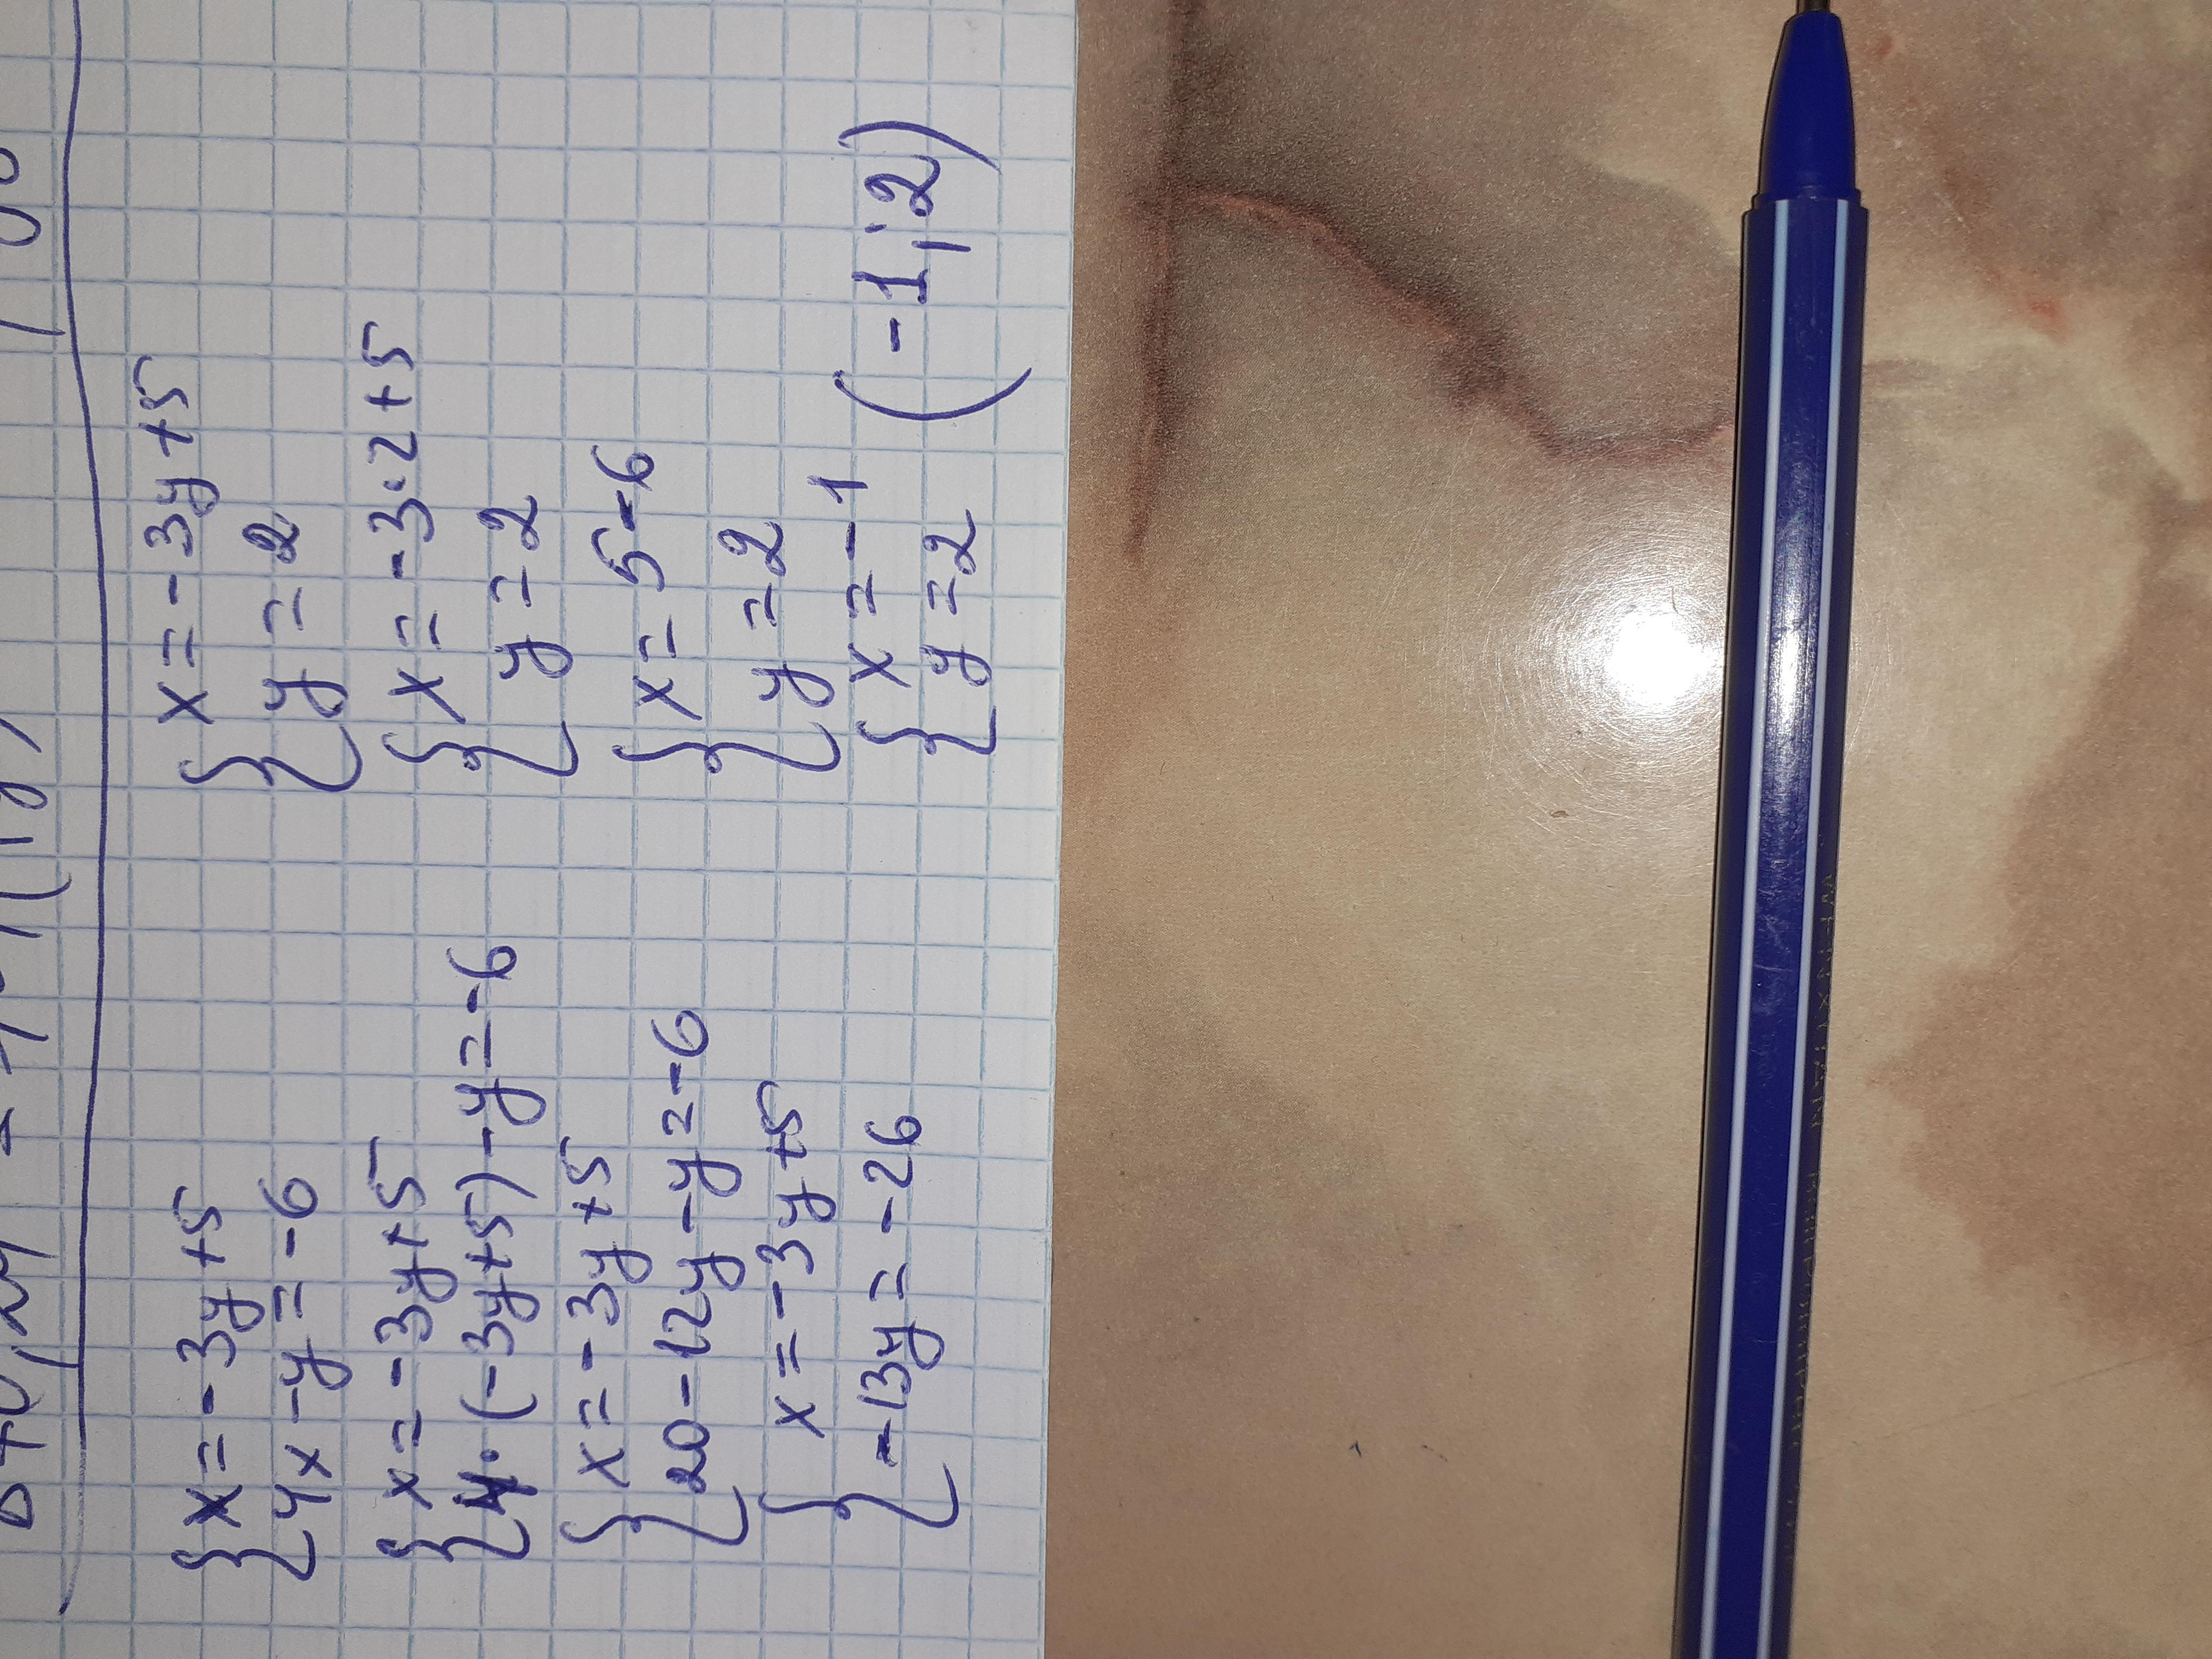 { x = -3y + 5
4x - y = -6
{ x = -3y + 5
4 · (-3y + 5) - y = -6
{ x = -3y + 5
20 - 12y - y = -6
{ x = -3y + 5
-13y = -26
{ x = -3y + 5
y = 2
{ x = -3 · 2 + 5
y = 2
{ x = 5 - 6
y = 2
{ x = -1
y = 2 (-1; 2)